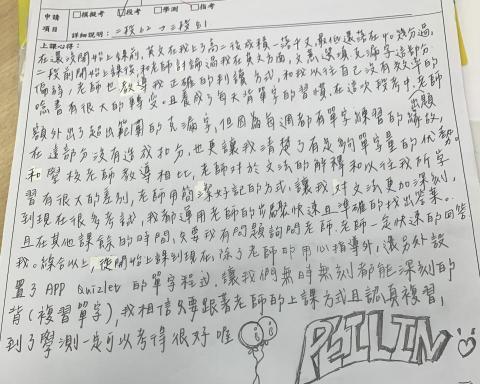 申請項目 □模擬考 ☑段考 □學測 □指考
詳細說明：二段62→三段81
上課心得：
在還沒開始上課前，英文在我上了高二後成績一落千丈，最低還落在40幾分過，
二段前開始上課後，和老師討論過我在英文方面，文意選填克漏字這部分
偏弱，老師也教導我正確的判讀方式，和我以往自己沒有效率的
唸書有很大的轉變。且養成了每天背單字的習慣。在這次段考中，老師
額外出了超出範圍的克漏字，但因為每週都有單字練習的講放，
在這部分沒有造成扣分，也更讓我清楚了有足夠單字量的優勢。
和學校老師教導相比，老師對於文法的解釋和以往我所學
習有很大的差別，老師用簡潔好記的方式，讓我對文法更加深刻，
到現在很多考試，我都運用老師的步驟快速且準確的找出答案。
且在其他課餘的時間，只要我有問題詢問老師，老師一定快速的回答
我。綜合以上，從開始上課到現在，除了老師的用心指導外，還另外設
置了APP Quizlet的單字程式，讓我們無時無刻都能深刻的
背(複習單字)，我相信只要跟著老師的上課方式且認真複習，
到了學測一定可以考得很好唷
PEILIN